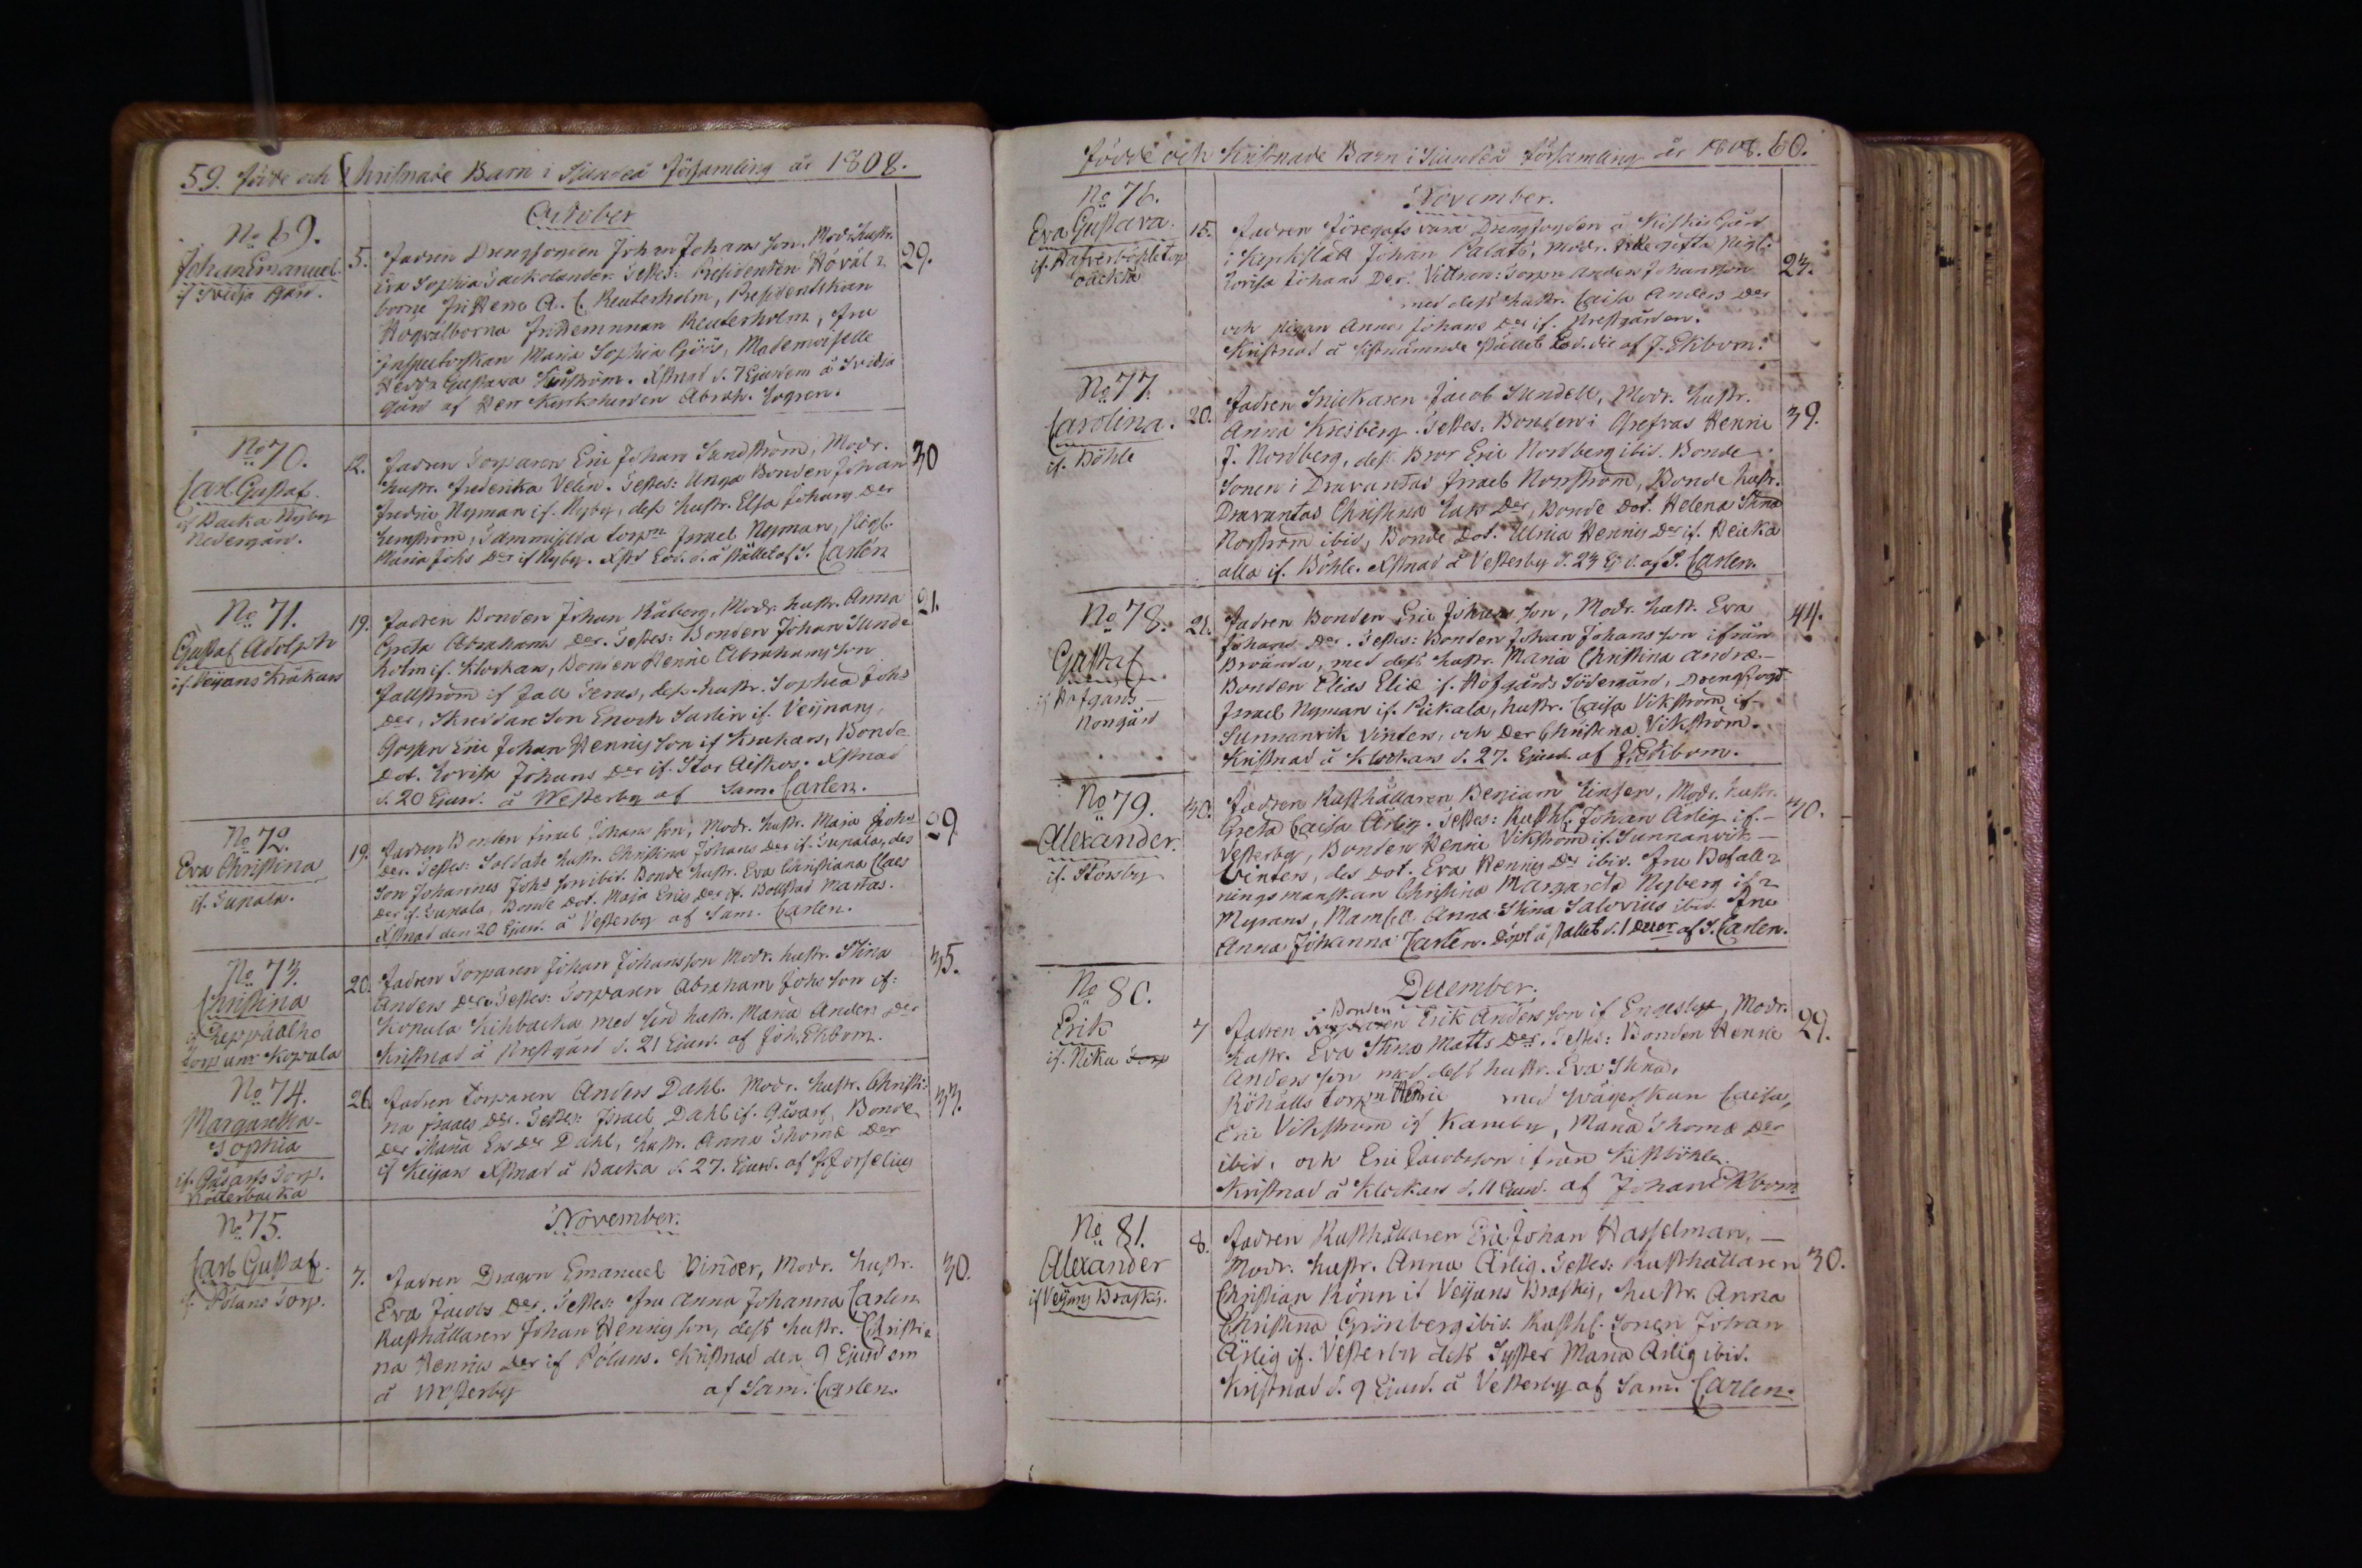 59. Födde och Christnade Barn i Sjundeå Församling år 1808.
October
No 69.
Johan Emanuel.
if Svidja gård.
5. Fadren Drengsonden Johan Johans son. Modr. hustr. 29.
Eva Sophia Sackolander. Testes: Presidenten Höväl-
borne Fri Herre A. C. Reuterholm, Presidentskan
Högvälborna Friheminnan Reuterholm, Fru
Inspectorskan Maria Sophia Göös, Mademoiselle
Hedda Gustava. Xstnad d. 7 Ejusdem å Svidja
gård af Herr Kyrkoherden Abrah.
No 70.
Carl Gustaf.
if Backa Nyby
Nedergård.
12. Fadren Torparen Eric Johan Sundström, Modr. 30
hustr. Frederika Velin. Testes: Unga Bonden Johan
Fredric Nyman if. Nyby, dess hustr. Elsa Johans Der
torpn Israel Nyman, Pigl.
Maria Johs Der if Nyby. Xstd Eod. d. å stället af S. Carlén
No 71.
Gustaf Adolph
if. Veijans Kråkars
19. Fadren Bonden Johan Råberg, Modr. hustr. Anna 21.
Greta Abrahams Der. Testes: Bonden Johan Sunde
holm if. Klockars, Bonden Henric Abrahams son
Fallström if Fall Teras, dess hustr. Sophia Johs
Der, Skreddare son Enoch Sarlin if. Veijnans,
Gossen Eric Johan Henrics son if Krakars, Bonde
Dot. Lovisa Johans Der if. Stor Aiskos. Xstnad
d. 20 Ejusd. å Westerby af Sam. Carlen.
No 72.
Eva Christina
if. Tupala.
19. Fadren Bonden Israel Johans son, Modr. hustr. Maja Johs 29
Der. Testes: Soldate hustr. Christina Johans Der if. Tupala, des
son Johannes Johs son ibid. Bonde hustr. Eva Christiana Claes
Der if. Tupala, Bonde Dot. Maja Erics Der if. Bollstad Martas.
Xstnad den 20 Ejusd. å Vesterby af Sam. Carlen.
No 73.
Christina
if
torp unr Kopula
20. Fadren Torparen Johan Johansson Modr. hustr. Stina 35.
Anders Der. Testes: Torparen Abraham Johs son if:
Kopula Kihbacka med sin hustr. Maria Anders Der
Kristnad å Prestgård d. 21 Ejusd. af Joh. Ekbom.
No 74.
Margaretha-
Sophia
if. Gåsarfs Torp.
Kotterbacka
26 Fadren torparen Anders Dahl. Modr. hustr. Christi: 33.
na Isaacs Der. Testes: Israel Dahl if. Gåsarf, Bonde
Der Maria Ers Der Dahl, hustr. Anna Thomæ Der
if Keijars Xstnad å Backa d. 27. Ejusd. af J. Forselius
November.
No 75.
Carl Gustaf.
if. Pölans Torp.
7. Fadren Dragon Emanuel Vinder, Modr. hustr. 30.
Eva Jacobs Der. Testes: Fru Anna Johanna Carlen
Rusthållaren Johan Henrics son, dess hustr. Christi-
na Henrics Der if Pölans. Kristnad den 9 Ejusdem
å Westerby af Sam. Carlen.
Födde och Kristnade Barn i Sjundeå Församling år 1808. 60.
November.
No 76.
Eva Gustava.
backa
15. Fadren föregafs vara Drengsonden å Gård
i Kyrkslätt Johan Palats, Modr. 23.
Lovisa Johans Der. Vittnen: Torpn Anders Johansson
med dess hustr. Caisa Anders Der
och Pigan Anna Johans Der if. Prestgården.
Kristnad å sistnämnde stället Eod. die af J. Ekbom.
No 77.
Carolina.
if. Böhle
20. Fadren Snickaren Jacob Sundell, Modr. hustr. 39.
Anna Kreiberg. Testes: Bonden i Grefvas Henric
J. Nordberg, dess Bror Eric Nordberg ibid. Bonde
sonen i Dravantas Israel Norrström, Bonde hustr.
Dravantas Christina Lars Der, Bonde Dot. Helena Stina
Norström ibid, Bonde Dot. Ulrica Henrics Der if. Heicka
alla if. Böhle. Xstnad å Vesterby d. 23 Ej. d. af S. Carlen.
No 78.
Gustaf
if Hofgårds
Norrgård
21. Fadren Bonden Eric Johans son, Modr. hustr. Eva 44.
Johans Der. Testes: Bonden Johan Johansson ifrån
med dess hustr. Maria Christina Andræ-
Bonden Elias Eliæ if. Hofgårds Södergård, Drengsond
Israel Nyman if. Pickala, hustr. Caisa Vikström if
Sunnanvik Vinters, och Der Christina Vikström.
Kristnad å Klockars d. 27. Ejusd. af J. Ekbom.
No 79.
Alexander.
if. Störsby
30. Fadren Rusthållaren Beniam Linsen, Modr. hustr. 40.
Greta Caisa Ärlig. Testes: Rusth. Johan Ärlig if.-
Vesterby, Bonden Henric Vikström if. Sunnanvik-
Vinters, des Dot. Eva Henrics Der ibid. Fru Befall-
ningsmanskan Christina Margareta Nyberg if-
Myrans, Mams:l Anna Stina Salovius ibid. Fru
Anna Johanna Carlen. Döpt å stället d. 1 Decer af S. Carlen.
December.
No 80.
Erik
if. Nika Torp
7 Fadren Bonden Torparen Erik Anders son if Engeslef, Modr. 29.
hustr. Eva Stina Matts Der. Testes: Bonden Henric
Anders son med dess hustr. Eva Stina,
Röhålls torpn Henric med Svägerskan Caisa,
Eric Vikström if Karuby, Maria Thomæ Der
ibid, och Eric Jacobsson ifrån Kustböhle.
Kristnad å Klockars d. 11 Ejusd. af Johan Ekbom
No 81.
Alexander
if Veijans Braskis.
8. Fadren Rusthållaren Eric Johan Hasselman,-
Modr. hustr. Anna Ärlig. Testes: Rusthållaren 30.
Christian Rönn if Veijans Braskis, hustr. Anna
Christina Grönberg ibid. Rusth. Sonen Johan
Ärlig if. Vesterby dess Syster Maria Ärlig ibid.
Kristnad d. 9 Ejusd. å Vesterby af Sam. Carlen.